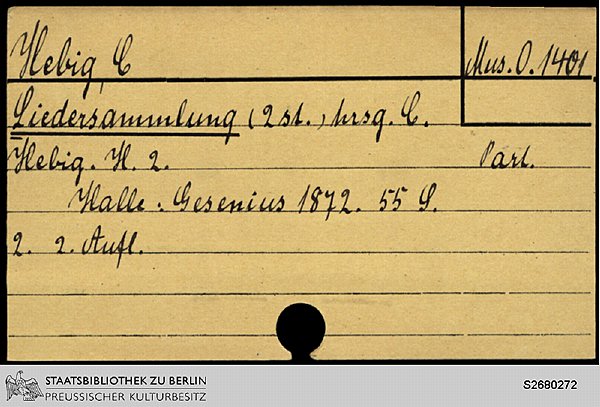 Hebig, C
Mus. O. 1401
Liedersammlung (2st.) hrsg. C.
Hebig. H. 2. Part.
Halle: Gesenius 1872. 55 S.
2. 2. Aufl.
STAATSBIBLIOTHEK ZU BERLIN
PREUSSISCHER KULTURBESITZ
S2680272